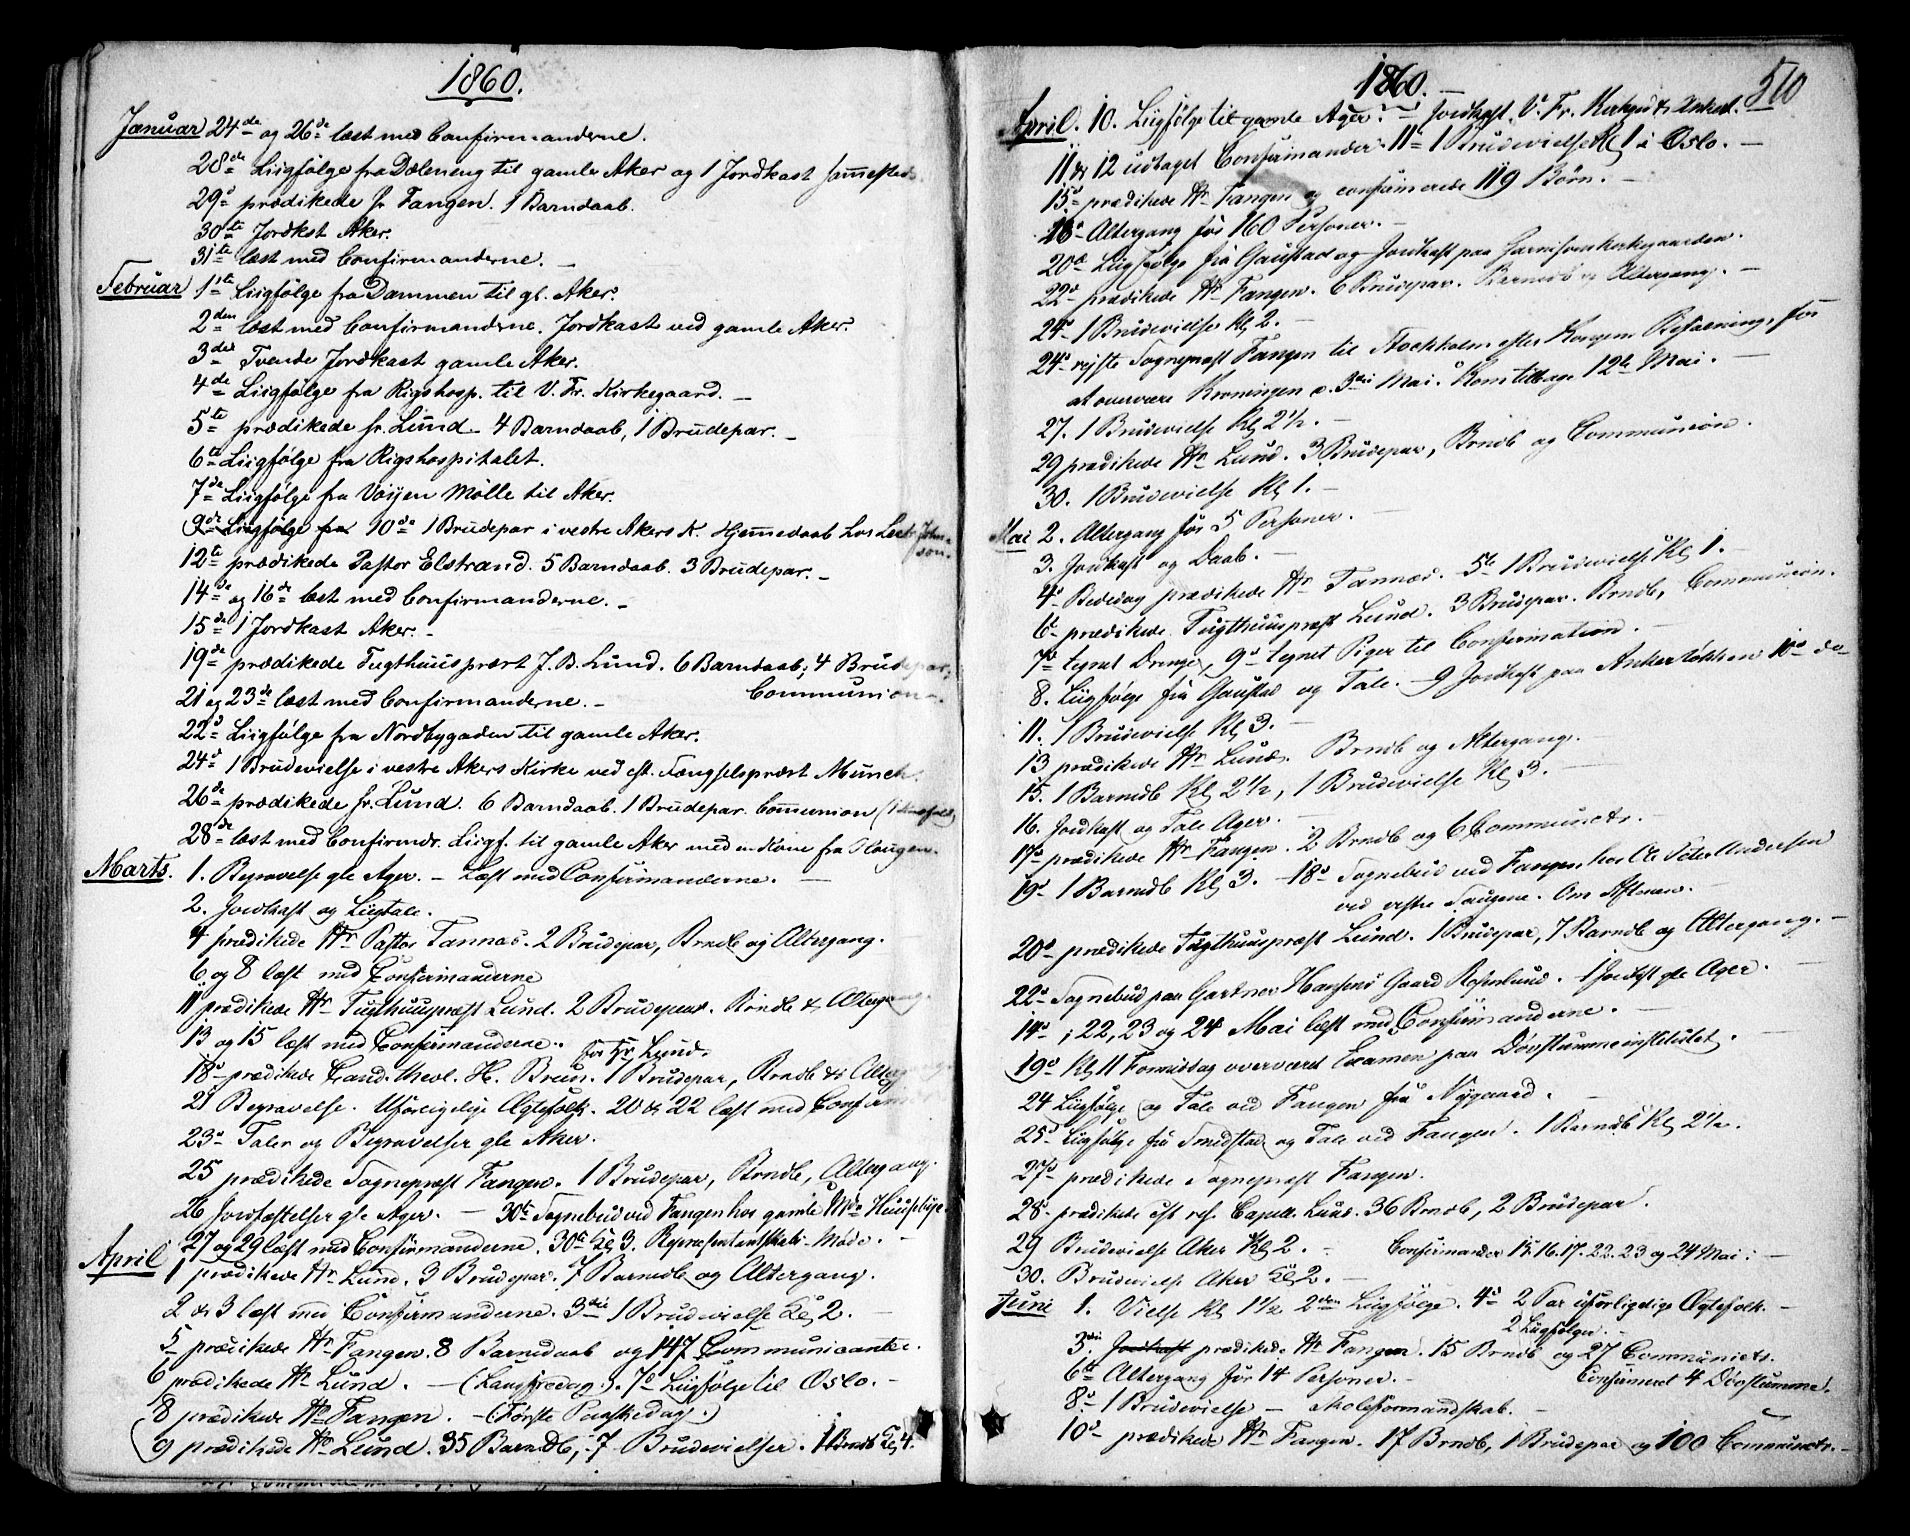 1860.
Januar 24de og 26de læst med Confirmanderne.
28de Liigfølge fra Dæleneng til gamle Aker og 1 Jordkast sammesteds
29de prædikede hr Fangen. 1 Barndaab.
30te Jordkst Aker.
31te læst med Confirmanderne. –
Februar 1ste Liigfølge fra Dammen til gl. Aker.
2den læst med Confirmanderne. Jordkast ved gamle Aker.
3die Tvende Jordkast gamle Aker.
4de Liigfølge fra Rigshosp. til V. Fr. Kirkegaard. –
5te prædikede hr. Lund. 4 Barndaab, 1 Brudepar. –
6te Liigfølge fra Rigshospitalet.
7de Liigfølge fra Vøyen Mølle til Aker.
9de Liigfølge fra 10de 1 Brudepar i vestre Akers K. Hjemmedaab hos
12te prædikede Pastor Elstrand. 5 Barndaab. 3 Brudepar. –
14de og 16de læst med Confirmanderne. –
15de 1 Jordkast Aker. –
19de prædikede Tugthuuspræst J. B. Lund. 6 Barndaab; 4 Brudepar;
Communion
21 og 23de læst med Confirmanderne. –
22d Liigfølge fra Nordbygaden til gamle Aker.
24d 1 Brudevielse i vestre Akers Kirke ved Fængselspræst Munch.
26de prædikede hr. Lund. 6 Barndaab. 1 Brudepar. Communion
28de læst med Confirmdr. Liigf. til gamle Aker med en Kone fra Haugen.
Marts. 1. Begravelse gle Ager. – Læst med Confirmanderne. –
2. Jordkast og Liigtale.
4 prædikede Hr Pastor Tannæs. 2 Brudepar, Brndb og Altergang.
6 og 8 læst med Confirmanderne
11 prædikede Hr Tugthuuspræst Lund. 2 Brudepar. Brndb & Altergang.
13 og 15 læst med Confirmanderne.
for Hr Lund.
18d prædikede Cand. theol. H. Brun. 1 Brudepar, Brndb & Altergang
21 Begravelse. Uforligelige Ægtefolk. 20 & 22 læst med Confirmdr
23d Taler og Begravelser gle Aker.
25 prædikede Sognepræst Fangen. 1 Brudepar, Brndb, Altergang.
26 Jordfæstelser gle Ager. – 30te Sognebud ved Fangen hos gamle
27 og 29 læst med Confirmanderne. 30te Kl 3. Repræsentantskabs-Møde. –
April 1 prædikede Hr Lund. 3 Brudepar. 7 Barndb og Altergang.
2 & 3 læst med Confirmanderne. 3die 1 Brudevielse Kl 2. –
5 prædikede Hr Fangen. 8 Barnedaab og 147 Communicanter.
6 prædikede Hr Lund. – (Langfredag). 7d Liigfølge til Oslo. –
8 prædikede Hr Fangen. – (Første Paaskedag.)
9 prædikede Hr Lund. 35 Barndb, 7 Brudevielser. 1 Brndb Kl 4.
1860. –
510
April. 10. Liigfølge til gamle Ager. – Jordkast V. Fr. Kirkegd &
11 & 12 udtaget Confirmander. 11te 1 Brudevielse Kl 1 i Oslo. –
15d prædikede Hr Fangen og confirmerede 119 Børn. –
18d Altergang for 160 Personer. –
20de Liigfølge fra Gaustad og Jordkast paa Garnisonskirkegaarden.
22d prædikede Hr Fangen. 6 Brudepar. Barndb og Altergang. –
24d 1 Brudevielse Kl 2. –
24d rejste Sognepræst Fangen til Stockholm efter Kongens Befaling, for
at overvære Kroningen d. 3die Mai. Kom tilbage 12te Mai. –
27. 1 Brudevielse Kl 2½. –
29 prædikede Hr Lund. 3 Brudepar, Brndb og Communion.
30. 1 Brudevielse Kl 1. –
Mai 2. Altergang for 5 Personer. –
3. Jordkast og Daab. –
4d Bededag prædikede Hr Tannæs. 5te 1 Brudevielse Kl 1. –
6te prædikede Tugthuuspræst Lund. 3 Brudepar. Brndb, Communion.
7de tegnet Drenge, 9d tegnet Piger til Confirmation. –
8. Liigfølge fra Gaustad og Tale. – 9 Jordkast paa Ankerløkken 10d do –
11. 1 Brudevielse Kl 3. –
13 prædikede Hr Lund. Brndb og Altergang. –
15. 1 Barnedb Kl 2½, 1 Brudevielse Kl 3. –
16. Jordkast og Tale Ager. –
17d prædikede Hr Fangen. 2 Brndb og 6 Communicts. –
19d 1 Barndb Kl 3. – 18d Sognebud ved Fangen hos Ole Peter Andersen
ved vestre Haugene. Om Aftenen. –
20d prædikede Tugthuuspræst Lund. 1 Brudepar, 7 Barndb og Altergang. –
22d Sognebud paa Gartner Hansens Gaard Rosenlund. 1 Jordkst gle Ager. –
14d; 22, 23 og 24 Mai læst med Confirmanderne. –
19d Kl 11 Formiddag overværet Examen paa Døvstummeinstitutet. –
24 Liigfølge og Tale ved Fangen fra Nygaard. –
25d Liigfølge fra Smedstad og Tale ved Fangen. 1 Barndb Kl 2½. –
27d prædikede Sognepræst Fangen.
28d prædikede res. Capell. Lund. 36 Brndb, 2 Brudepar.
29 Brudevielse Aker Kl 2. – Confirmander 15. 16. 17. 22. 23 og 24 Mai. –
30. Brudevielse Aker Kl 2. –
Juni 1. Vielse Kl 1½ 2den Liigfølge. 4d 2 Par uforligelige Ægtefolk. –
2 Liigfølger. –
3die Jordkast prædikede Hr Fangen. 15 Brndb og 27 Communicts.
6te Altergang for 14 Personer. – Confirmeret 4 Døvstumme.
8d 1 Brudevielse – Skoleformandskab. –
10d prædikede Hr Fangen. 17 Brndb, 1 Brudepar og 100 Communicts. –